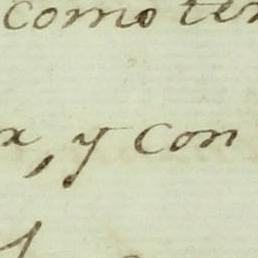 como ten
x, y con